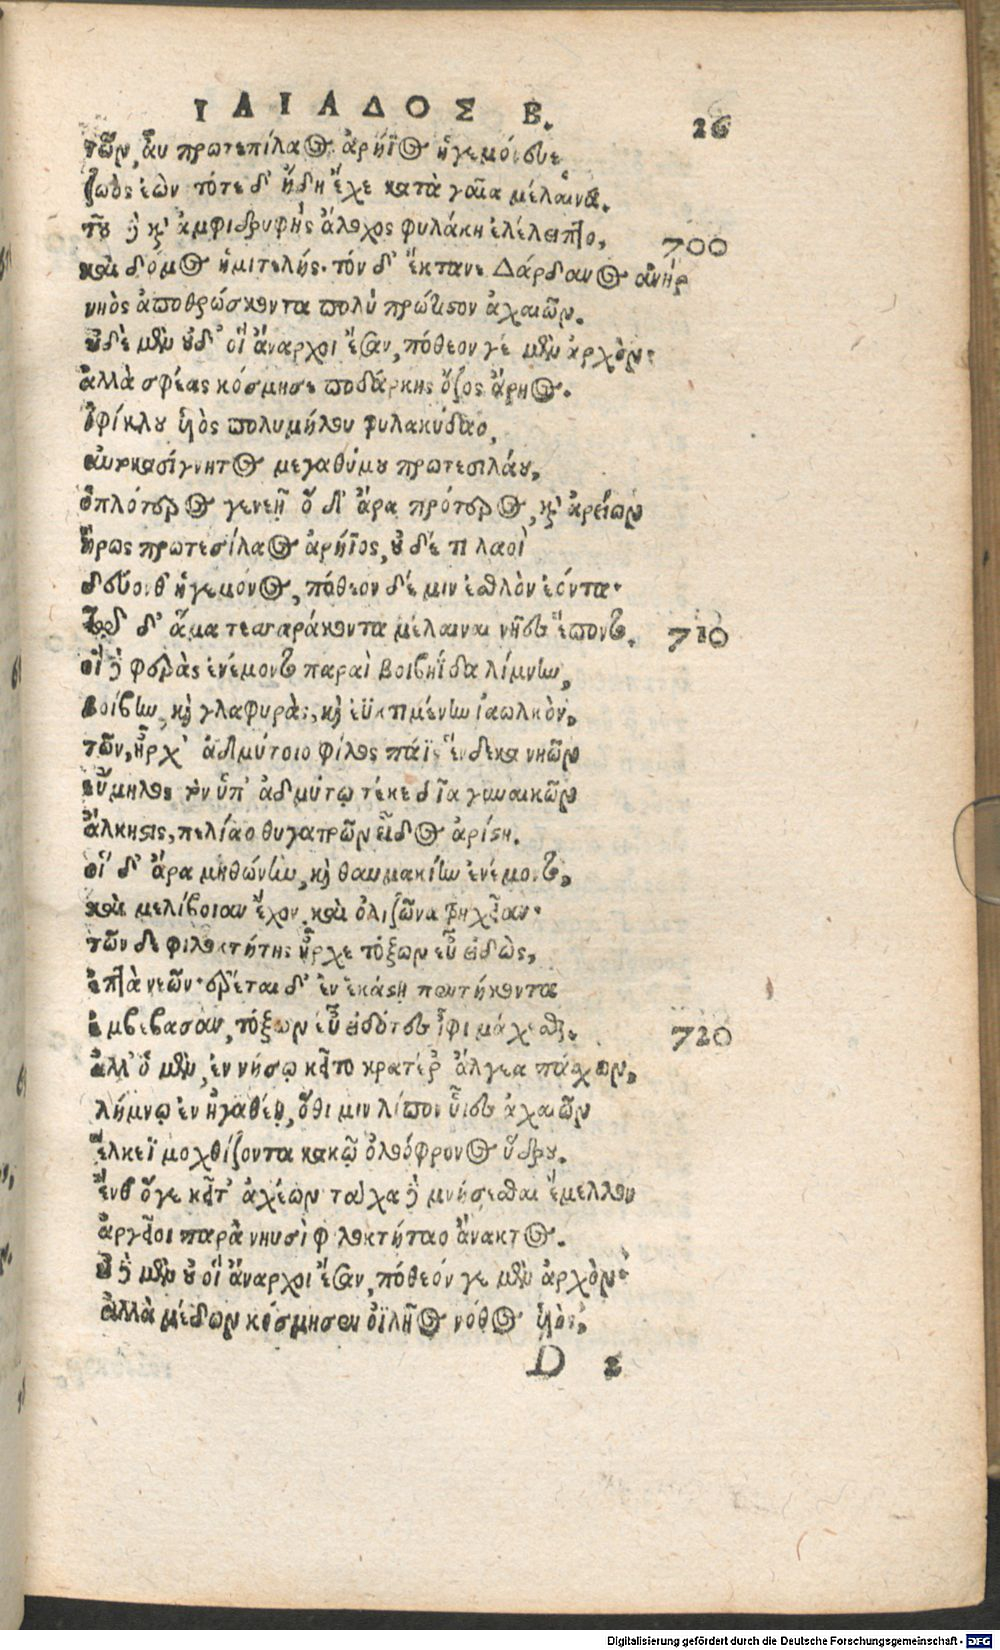 ΙΛΙΑΔΟΣ Β.
26
τῶν, ἂυ πρωτεπίλαος ἀρήϊος ἡγεμόνευε
ζωὸς ἐὼν τότε δ' ἤδη ἔχε κατὰ γαῖα μέλαινα.
τοῦ δὲ κỳ ἀμφιδρυφὴς ἄλοχος φυλάκῃ ἐλέλειπτο,
700
καὶ δόμος ἡμιτελής. τὸν δ' ἔκτανε Δάρδανος ἀνὴρ
νηὸς ἀποθρώσκοντα πολὺ πρώτιστον ἀχαιῶν.
οὐδὲ μὲν οὐδ' οἳ ἄναρχοι ἔσαν, πόθεον γέ μὲν ἀρχόν·
ἀλλὰ σφέας κόσμησε ποδάρκης ὄζος ἄρηος.
ἰφίκλου υἱὸς πολυμήλου φυλακίδαο,
αὐτοκασίγνητος μεγαθύμου πρωτεσιλάου,
ὁπλότερος γενεῇ ὃ δ' ἄρα πρότερος, κỳ ἀρείων
ἥρως πρωτεσίλαος ἀρήϊος, οὐδέ τι λαοὶ
δεύονθ' ἡγεμόνος, πόθεον δέ μιν ἐσθλὸν ἐόντα·
τῷ δ' ἅμα τεσσαράκοντα μέλαιναι νῆες ἕποντο.
710
οἳ δὲ φερὰς ἐνέμοντο παραὶ Βοιβηΐδα λίμνην,
βοίβην, καὶ γλαφυρὰς, καὶ ἐϋκτιμένην ἰαωλκὸν,
τῶν, ἦρχ' ἀδμύτοιο φίλος πάϊς ἕνδεκα νηῶν
εὔμηλος τὸν ὑπ' ἀδμύτῳ τέκε δῖα γυναικῶν
ἄλκηστις, πελίαο θυγατρῶν εἶδος ἀρίστη.
οἳ δ' ἄρα μηθώνην, καὶ θαυμακίην ἐνέμοντο,
καὶ μελίβοιαν ἔχον, καὶ ὀλιζῶνα τρηχεῖαν·
τῶν δὲ φιλοκτήτης ἦρχε τόξων εὖ εἰδὼς,
ἑπτὰ νεῶν· ἐρέται δ' ἐν ἑκάστῃ πεντήκοντα
ἐμβέβασαν, τόξων εὖ εἰδότες ἶφι μάχεσθαι.
720
ἀλλ' ὁ μὲν, ἐν νήσῳ κεῖτο κρατέρ' ἄλγεα πάσχων,
λήμνῳ ἐν ἠγαθέῃ, ὅθι μιν λίπον υἷες ἀχαιῶν
ἕλκεϊ μοχθίζοντα κακῷ ὀλοόφρονος ὕδρου.
ἔνθ' ὅγε κεῖτ' ἀχέων τάχα δὲ μνήσεσθαι ἔμελλον
ἀργεῖοι παρὰ νηυσὶ φιλοκτήταο ἄνακτος.
οὐδὲ μὲν οὐδ' οἳ ἄναρχοι ἔσαν, πόθεόν γε μὲν ἀρχόν·
ἀλλὰ μέδων κόσμησεν ὀϊλῆος νόθος υἱὸς,
D 2
Digitalisierung gefördert durch die Deutsche Forschungsgemeinschaft - DFG